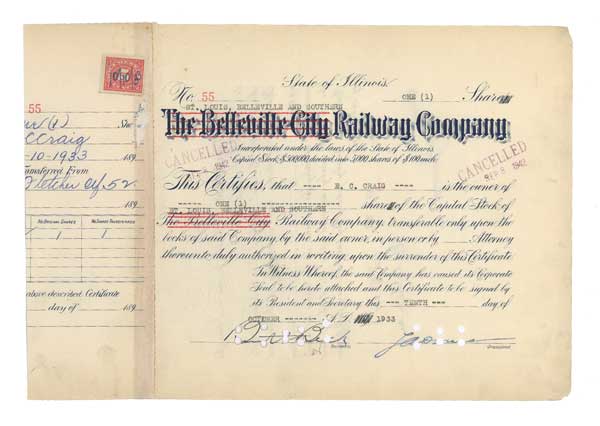 State of Illinois.
No. 55 ONE (1) Share
ST. LOUIS, BELLEVILLE AND SOUTHERN
The Belleville City Railway Company
Incorporated under the laws of the State of Illinois
Capital Stock $500,000 divided into 5,000 shares of $100 each
CANCELLED
1942
CANCELLED
SEP 8 1942
This Certifies, that ---- E. C. CRAIG ---- is the owner of
----- ONE (1) ---------------- shares of the Capital Stock of
ST. LOUIS, BELLEVILLE AND SOUTHERN
The Belleville City Railway Company, transferable only upon the
books of said Company, by the said owner, in person or by Attorney
thereunto duly authorized in writing upon the surrender of this Certificate
In Witness Whereof, the said Company has caused its Corporate
Seal to be hereto attached and this Certificate to be signed by
its President and Secretary this --- TENTH --- day of
OCTOBER ------- A.D. 1933
Secretary President
55
Craig
-10-1933 189
Transferred from
Fletcher Ctf 52
No. Original Shares
1 1
above described Certificate
day of 189